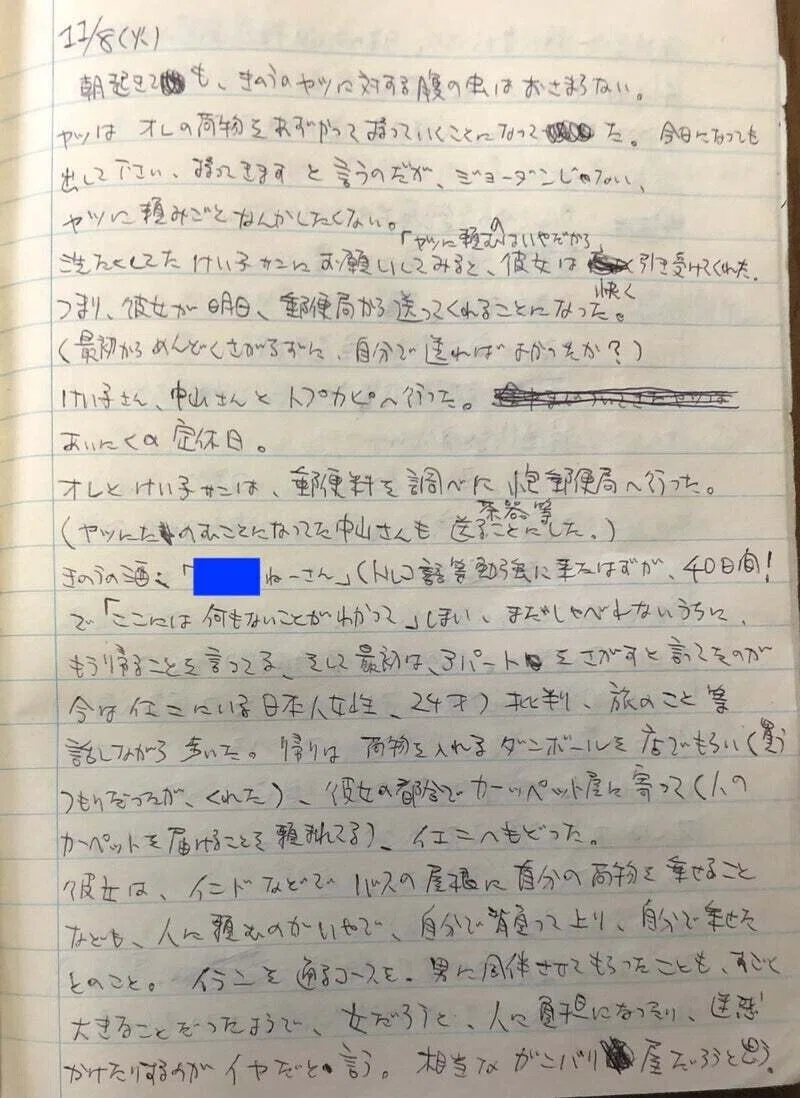 11/8(火)
朝起きても、きのうのヤツに対する腹の虫はおさまらない。
ヤツは オレの荷物をあずかって持っていくことになってた。今日になっても
出して下さい、持ってきます と言うのだが、ジョーダンじゃない、
ヤツに頼みごとなんかしたくない。
「ヤツに頼むのはいやだから」
洗たくしてた けい子サンにお願いしてみると、彼女は 快く 引き受けてくれた。
つまり、彼女が明日、郵便局から送ってくれることになった。
(最初からめんどくさがらずに、自分で送ればよかったか?)
けい子さん、中山さんと トプカピへ行った。
あいにくの定休日。
オレと けい子サンは、郵便料を調べに 郵便局へ行った。
(ヤツにたのむことになってた中山さんも 茶器等 送ることにした。)
きのうの酒、「 ねーさん」(トルコ語等勉強に来たはずが、40日間!
で「ここには何もないことがわかって」しまい、まだしゃべれないうちに、
もう帰ることを言ってる、そして最初は、アパートをさがすと言ってたのが
今はイエニにいる日本人女性、24才) 批判、旅のこと等
話しながら歩いた。帰りは 荷物を入れるダンボールを店でもらい(買う
つもりだったが、くれた)、彼女の都合でカーペット屋に寄って(人の
カーペットを届けることを頼まれてる)、イエニへもどった。
彼女は、インドなどで バスの屋根に自分の荷物を乗せること
なども、人に頼むのがいやで、自分で背負って上り、自分で乗せた
とのこと。イランを通るコースを、男に同伴させてもらったことも、すごく
大きなことだったようで、女だろうと、人に負担になったり、迷惑
かけたりするのがイヤだと言う。相当な ガンバリ屋だろうと思う。